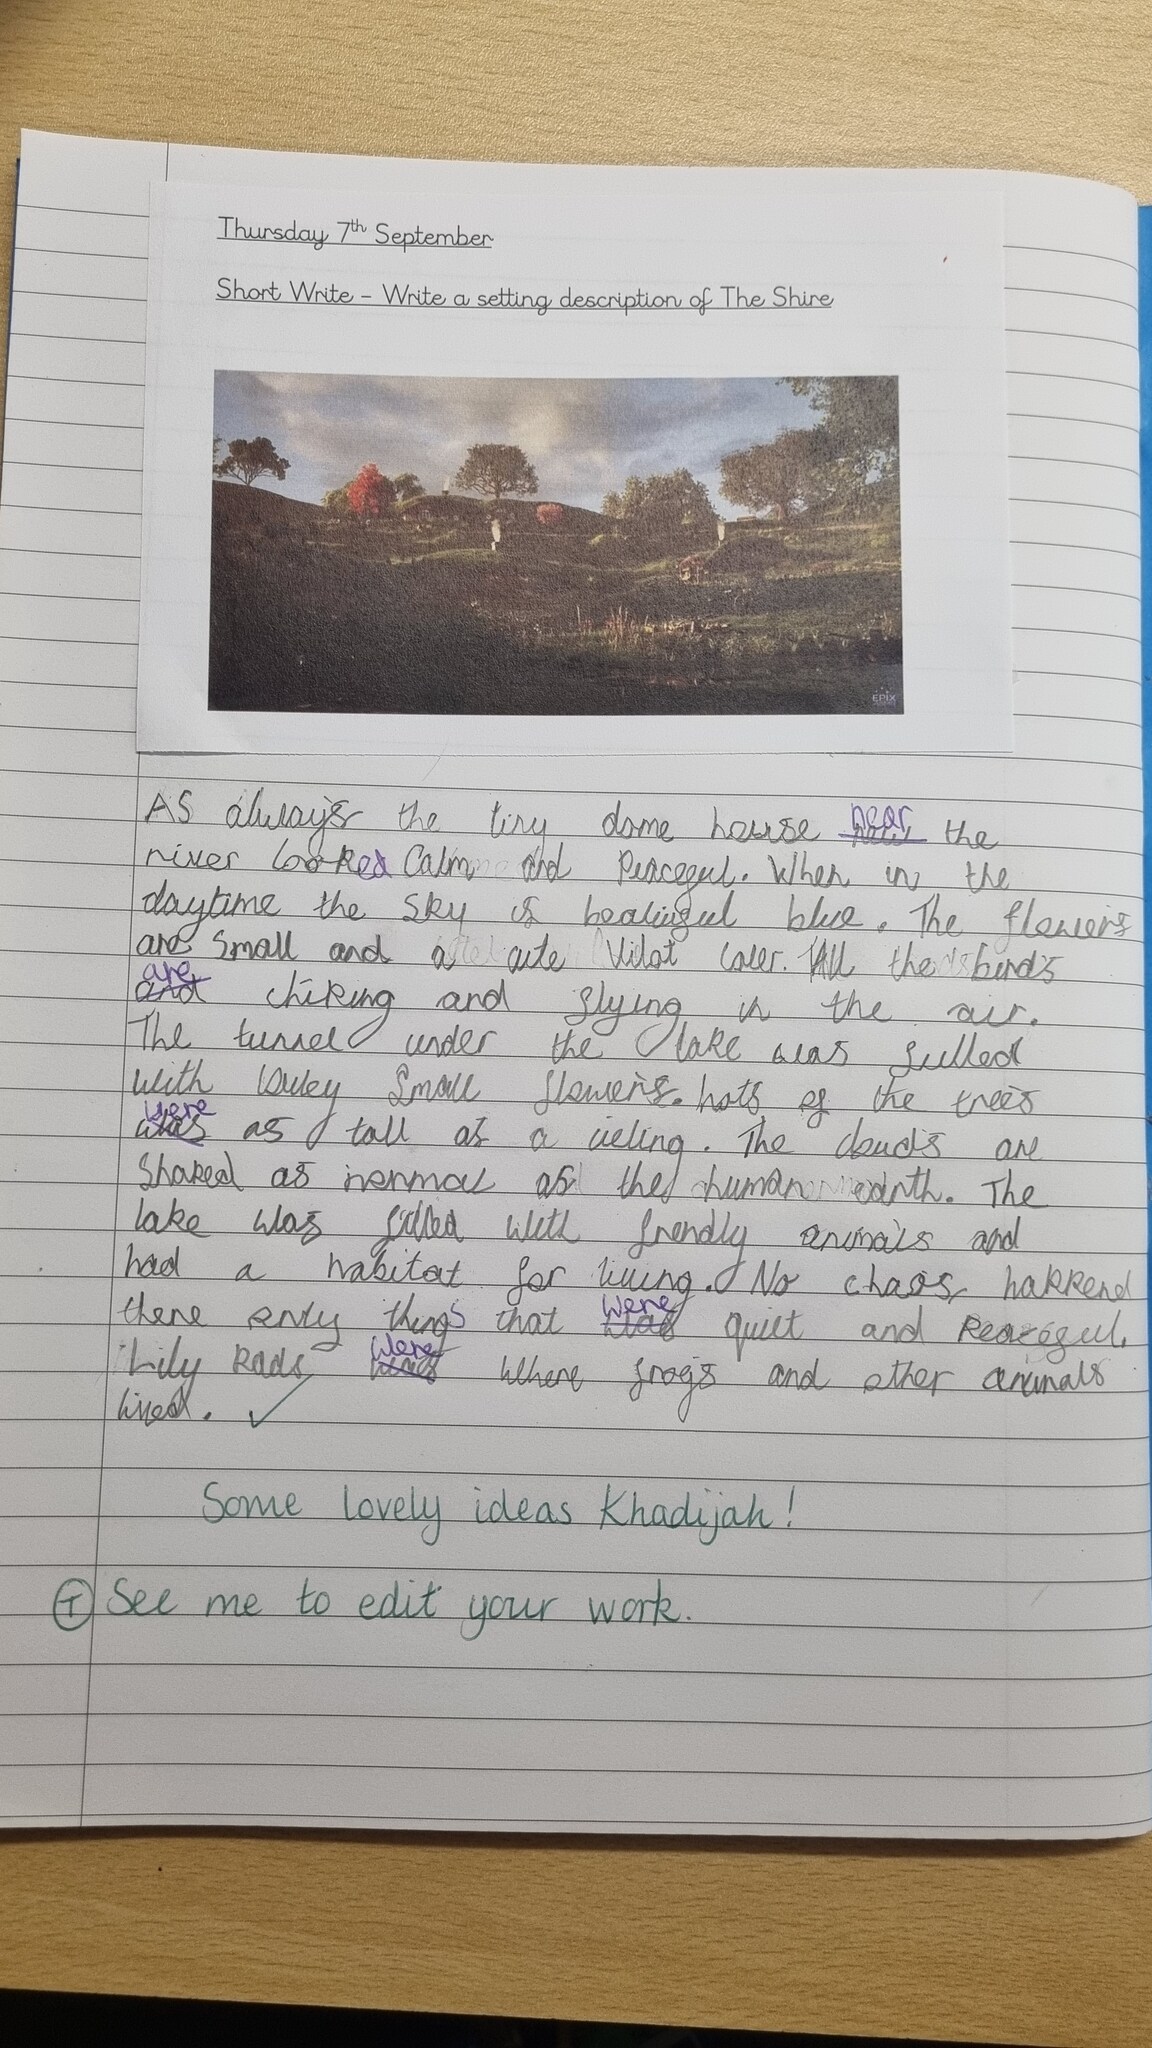 Thursday 7th September
Short Write - Write a setting description of The Shire
EPIX
As always the tiny dome house near the
river looked Calm and Peacegul. When in the
daytime the Sky is beatigul blue. The flowers
are Small and a cute Vilot coler. All the birds
are chirping and flying in the air.
The tunnel under the lake was filled
with luvley Small flowers. lots of the trees
were as tall as a cieling. The clouds are
Shaped as normal as the human earth. The
lake was filled with frendly animals and
had a habitat for living. No chaos happend
there only things that were quiet and Peacegul.
Lily Pads were where frogs and other animals
lived. ✓
Some lovely ideas Khadijah!
T See me to edit your work.